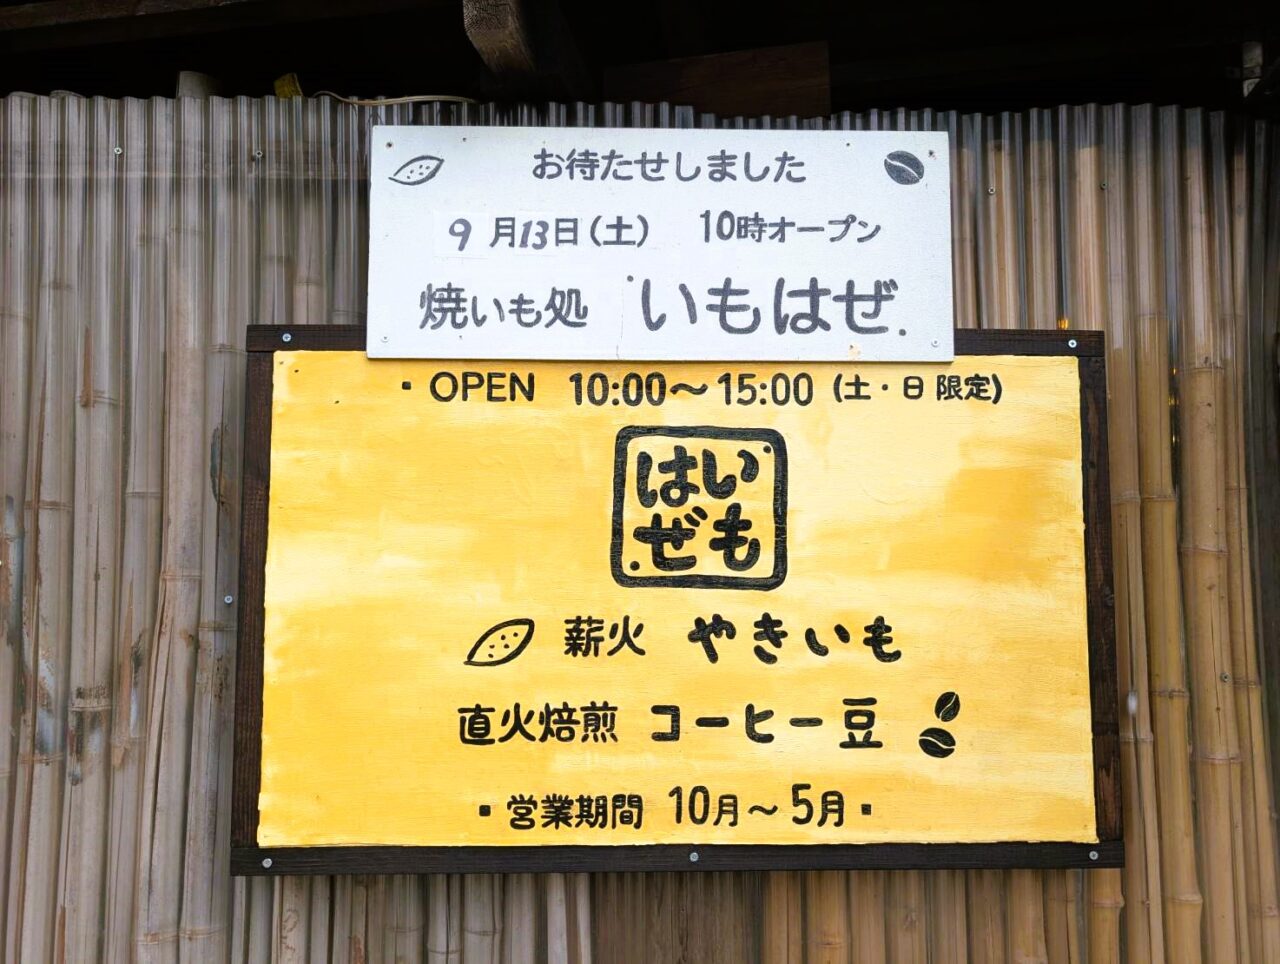 お待たせしました
9月13日(土) 10時オープン
焼いも処 いもはぜ.
・OPEN 10:00〜15:00 (土・日限定)
いも
はぜ
薪火 やきいも
直火焙煎 コーヒー豆
・営業期間 10月〜5月・